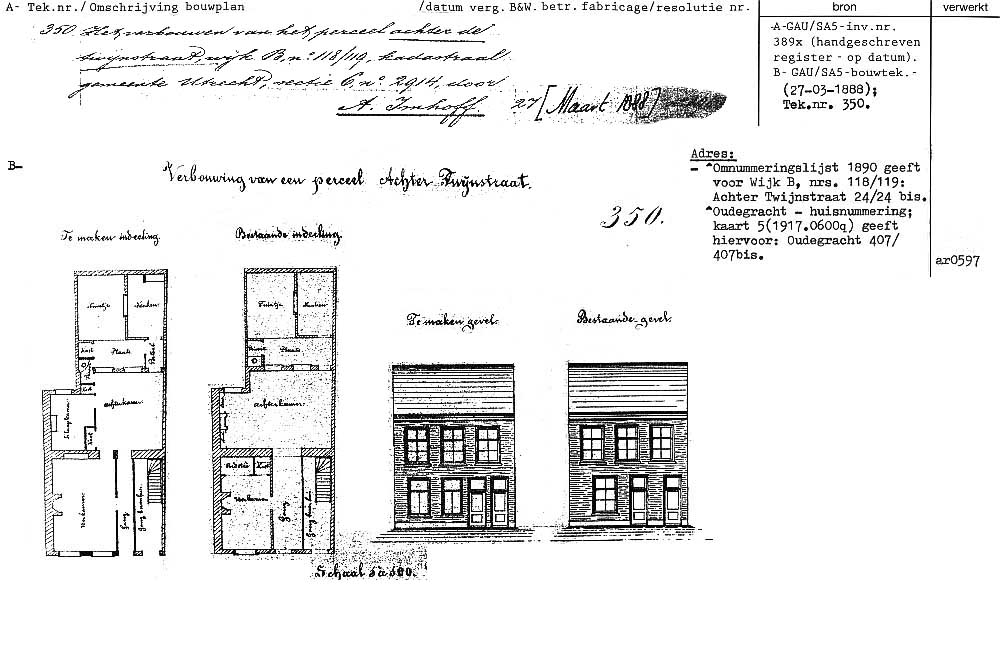 A- Tek.nr./Omschrijving bouwplan /datum verg. B&W. betr. fabricage/resolutie nr. bron verwerkt
350. Het verbouwen van het perceel achter de
twijnstraat, wijk B, nº 118/119, kadastraal
gemeente Utrecht, sectie C, nº 2914, door
A. Imhoff. 27 [Maart 1888]
A-GAU/SA5-inv.nr.
389x (handgeschreven
register - op datum).
B- GAU/SA5-bouwtek.-
(27-03-1888);
Tek.nr. 350.
B-
Verbouwing van een perceel Achter Twijnstraat.
350.
Adres:
- *Omnummeringslijst 1890 geeft
voor Wijk B, nrs. 118/119:
Achter Twijnstraat 24/24 bis.
*Oudegracht - huisnummering;
kaart 5(1917.0600q) geeft
hiervoor: Oudegracht 407/
407bis.
ar0597
Te maken indeeling.
Bestaande indeeling.
Te maken gevel.
Bestaande gevel.
Keuken
Kast
Plaats
Portaal
achterkamer
Slaapkamer
Kast
Voorkamer
Gang
Gang bovenhuis
Keuken
Plaats
achterkamer
Bedstee
Kast
Voorkamer
Gang
Gang bovenhuis
Schaal 1 à 100.